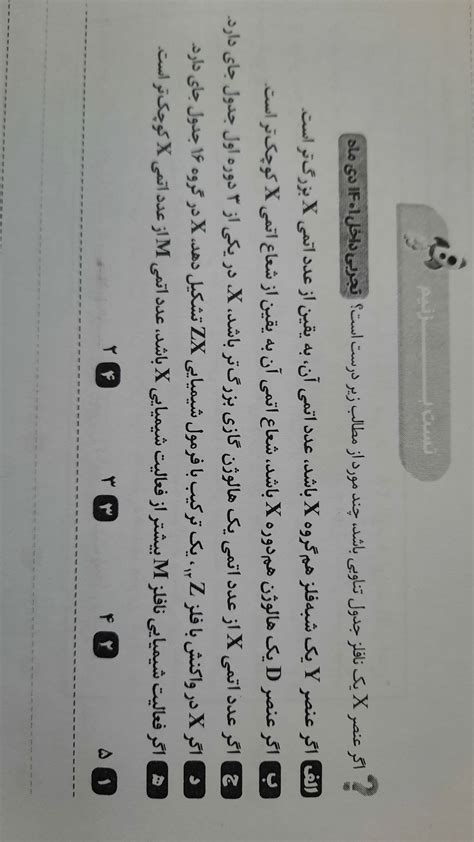 تست بزنیم
اگر عنصر X یک نافلز جدول تناوبی باشد، چند مورد از مطالب زیر درست است؟ تجربی داخل ۱۴۰۱ دی ماه
الف اگر عنصر Y یک شبه‌فلز هم‌گروه X باشد، عدد اتمی آن، به یقین از عدد اتمی X بزرگ‌تر است.
ب اگر عنصر D یک هالوژن هم‌دوره X باشد، شعاع اتمی آن به یقین از شعاع اتمی X کوچک‌تر است.
ج اگر عدد اتمی X از عدد اتمی یک هالوژن گازی بزرگ‌تر باشد، X، در یکی از ۳ دوره اول جدول جای دارد.
د اگر X در واکنش با فلز ₁₂Z، یک ترکیب با فرمول شیمیایی ZX تشکیل دهد، X در گروه ۱۶ جدول جای دارد.
ه اگر فعالیت شیمیایی نافلز M بیشتر از فعالیت شیمیایی X باشد، عدد اتمی M از عدد اتمی X کوچک‌تر است.
۱ ۵ ۲ ۴ ۳ ۳ ۴ ۲